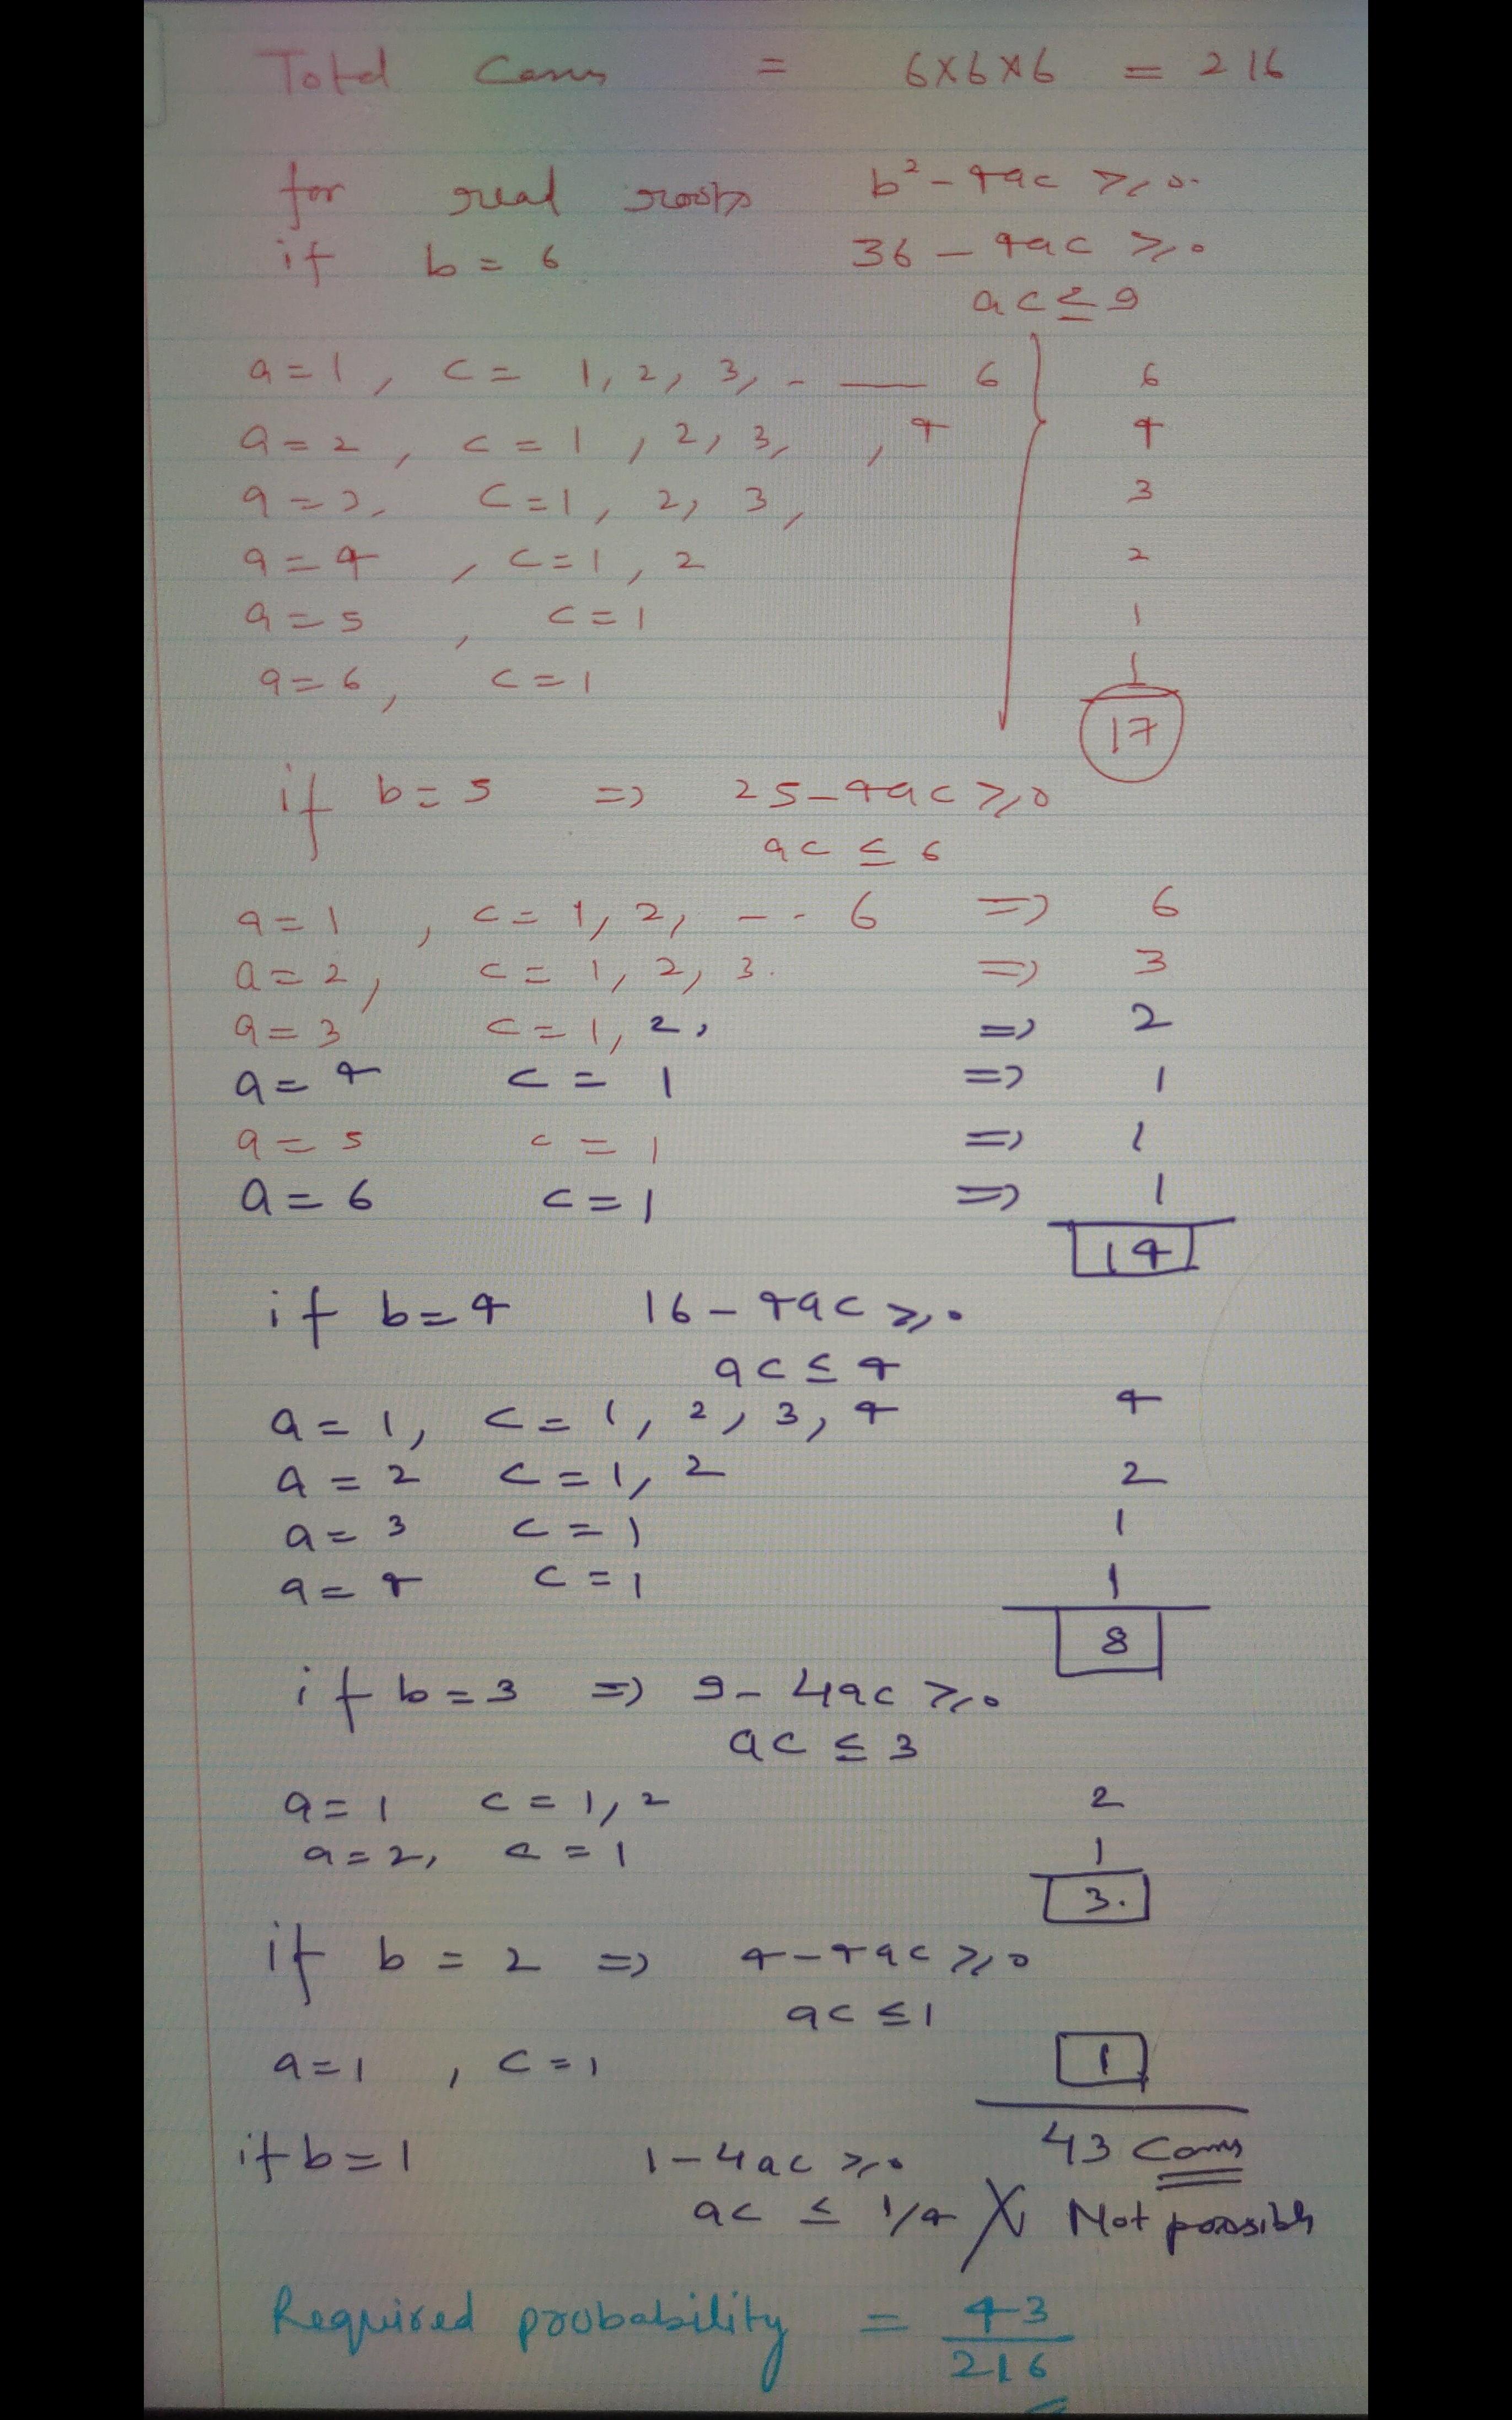 Total Cases = 6×6×6 = 216
for real roots b²-4ac ≥ 0.
if b = 6 36 - 4ac ≥ 0
ac ≤ 9
a = 1, c = 1, 2, 3, - — 6 } 6
a = 2, c = 1, 2, 3, , 4 4
a = 3, c = 1, 2, 3, 3
a = 4, c = 1, 2 2
a = 5, c = 1 1
a = 6, c = 1 1
17
if b = 5 => 25-4ac ≥ 0
ac ≤ 6
a = 1, c = 1, 2, - - 6 => 6
a = 2, c = 1, 2, 3. => 3
a = 3 c = 1, 2, => 2
a = 4 c = 1 => 1
a = 5 c = 1 => 1
a = 6 c = 1 => 1
14
if b = 4 16 - 4ac ≥ 0
ac ≤ 4
a = 1, c = 1, 2, 3, 4 4
a = 2 c = 1, 2 2
a = 3 c = 1 1
a = 4 c = 1 1
8
if b = 3 => 9 - 4ac ≥ 0
ac ≤ 3
a = 1 c = 1, 2 2
a = 2, c = 1 1
3.
if b = 2 => 4-4ac ≥ 0
ac ≤ 1
a = 1, c = 1 1
43 Cases
if b = 1 1-4ac ≥ 0
ac ≤ 1/4 X Not possible
Required probability = 43/216